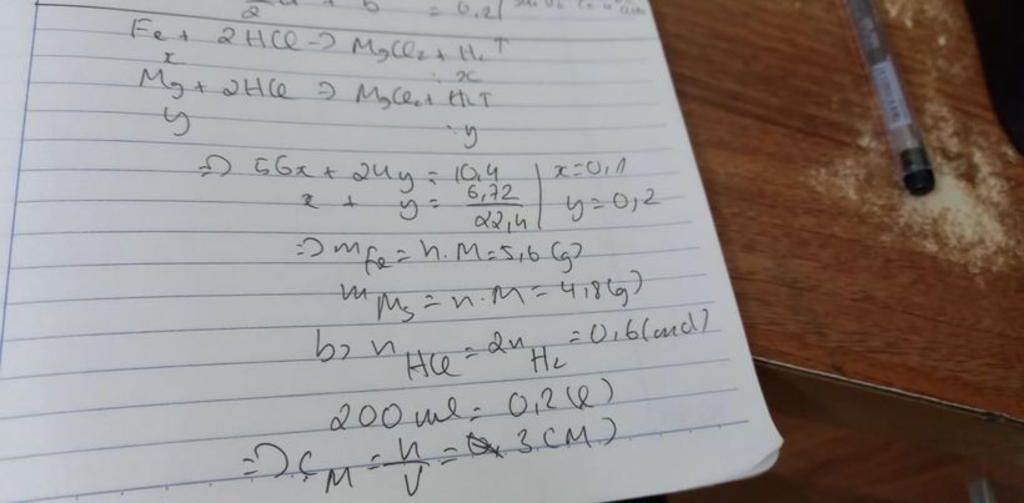 2 + b = 0,2
Fe + 2HCl => MgCl2 + H2↑
x x
Mg + 2HCl => MgCl2 + H2↑
y y
=> 56x + 24y = 10,4 | x = 0,1
x + y = 6,72/22,4 | y = 0,2
=> mFe = n.M = 5,6 (g)
mMg = n.M = 4,8 (g)
b> nHCl = 2nH2 = 0,6 (mol)
200 ml = 0,2 (l)
=> CM = n/V = 3 (M)